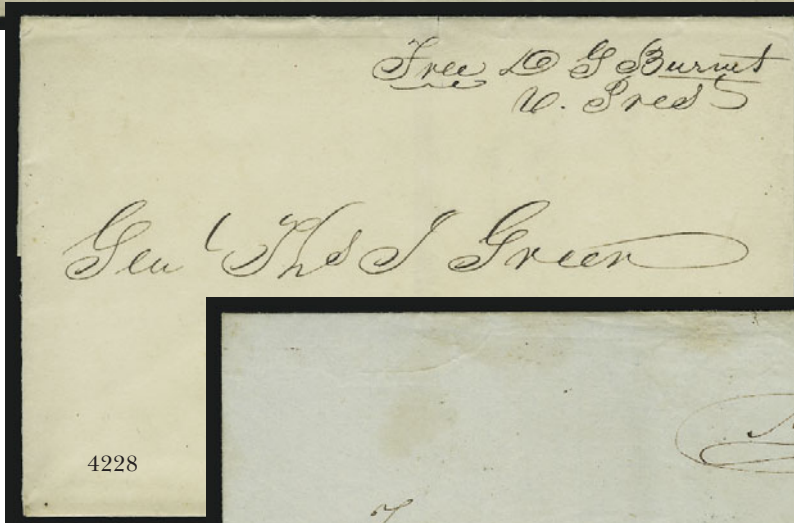 Free D G Burnet
V. Prest
Genl Ths J Green
4228